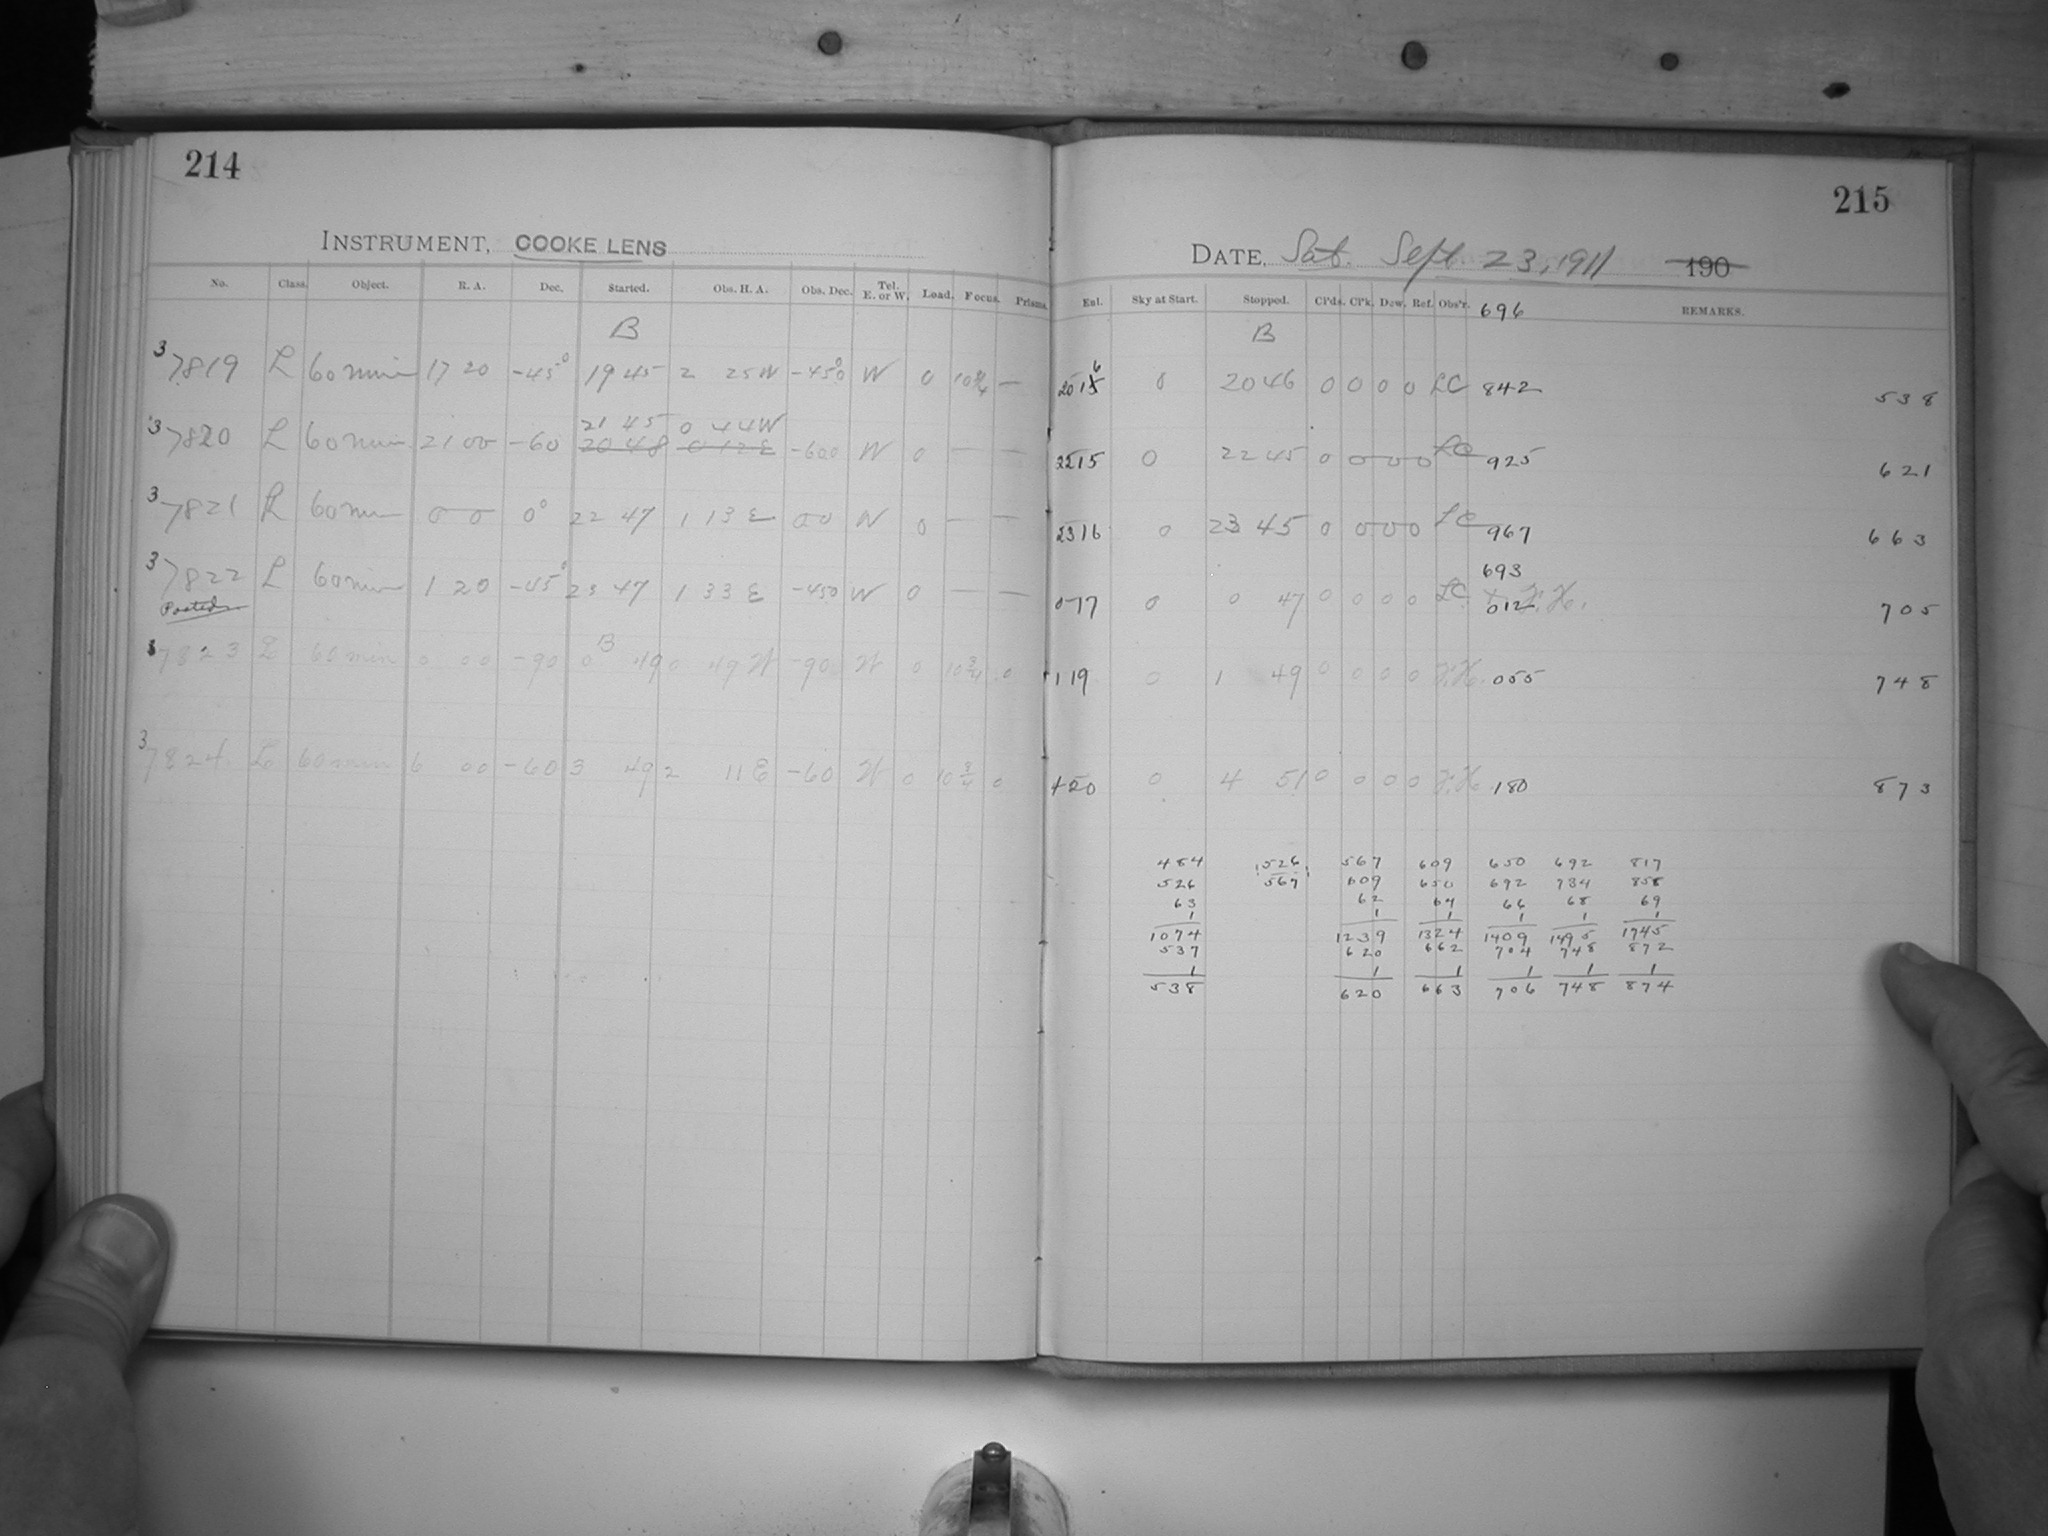 214
INSTRUMENT, COOKE LENS
No. Class. Object. R. A. Dec. Started. Obs. H. A. Obs. Dec. Tel. E. or W. Load. Focus. Prisms.
B
37819 L 60 min 17 20 -45° 19 45 2 25 W -45° 0 W 0 10 3/4 —
21 45 0 44 W
37820 L 60 min 21 00 -60 20 48 0 12 E -60 0 W 0 — —
37821 L 60 min 0 0 0° 22 47 1 13 E 0 0 W 0 — —
37822 L 60 min 1 20 -45° 23 47 1 33 E -45 0 W 0 — —
Posted
37823 L 60 min 0 00 -90 0 B 49 0 49 W -90 W 0 10 3/4 0
37824 L 60 min 6 00 -60 3 49 2 11 E -60 W 0 10 3/4 0
215
DATE, Sat. Sept. 23, 1911 190
Ent. Sky at Start. Stopped. Cl'ds. Cl'k. Dew. Ref. Obs'r. 696 REMARKS.
B
6
2015 0 20 46 0 0 0 0 LC 842 538
2215 0 22 45 0 0 0 0 LC 925 621
2316 0 23 45 0 0 0 0 LC 967 663
693
017 0 0 47 0 0 0 0 LC + 012 F.H. 705
119 0 1 49 0 0 0 0 F.H. 055 748
420 0 4 51 0 0 0 0 F.H. 180 873
484 526 567 609 650 692 817
526 567 609 650 692 734 858
63 62 64 66 68 69
1 1 1 1 1 1
1074 1239 1324 1409 1495 1745
537 620 662 704 748 872
1 1 1 1 1 1
538 620 663 706 748 874